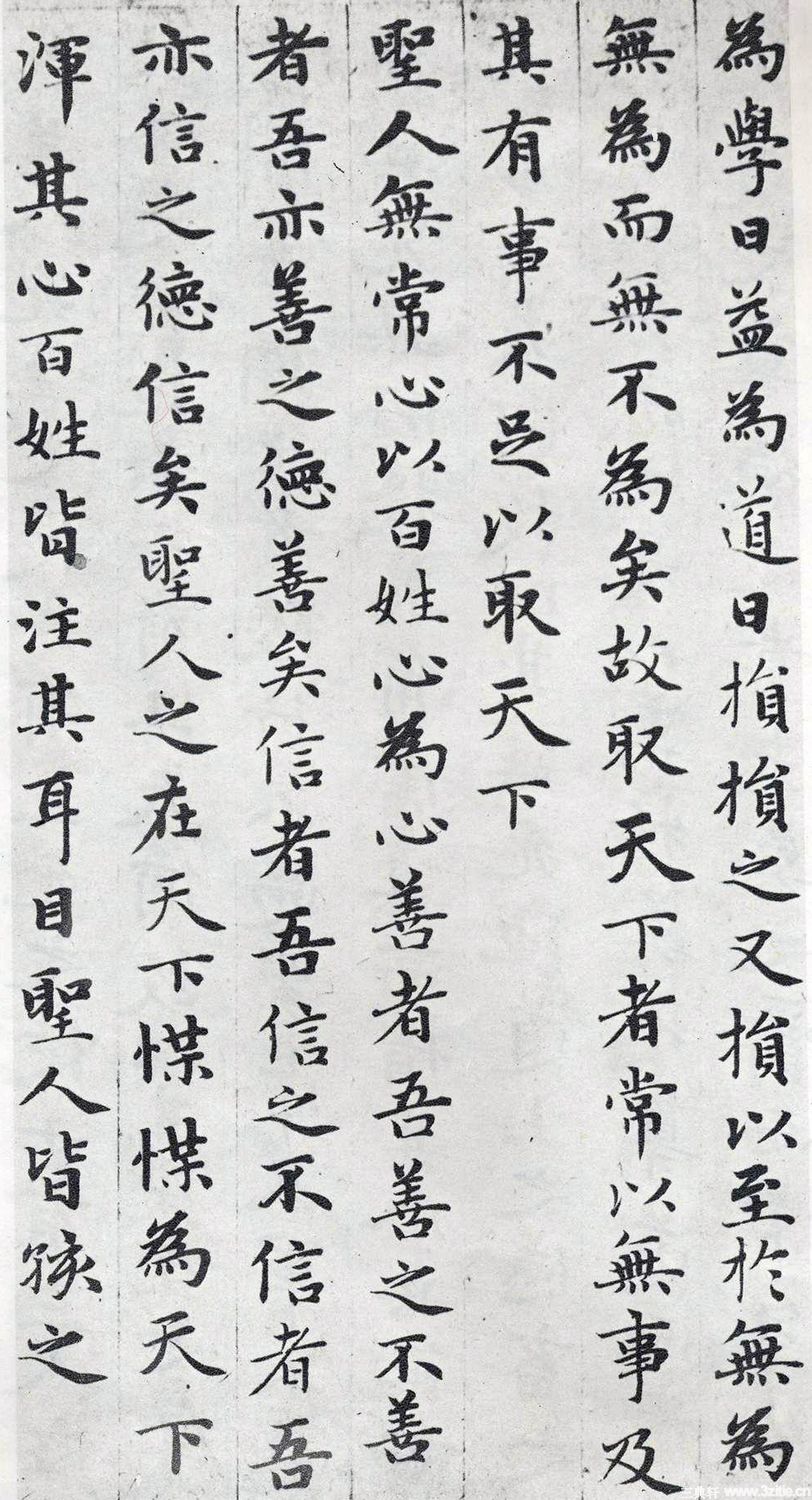 為學日益為道日損損之又損以至於無為
無為而無不為矣故取天下者常以無事及
其有事不足以取天下
聖人無常心以百姓心為心善者吾善之不善
者吾亦善之德善矣信者吾信之不信者吾
亦信之德信矣聖人之在天下惵惵為天下
渾其心百姓皆注其耳目聖人皆孩之
www.3zitie.cn